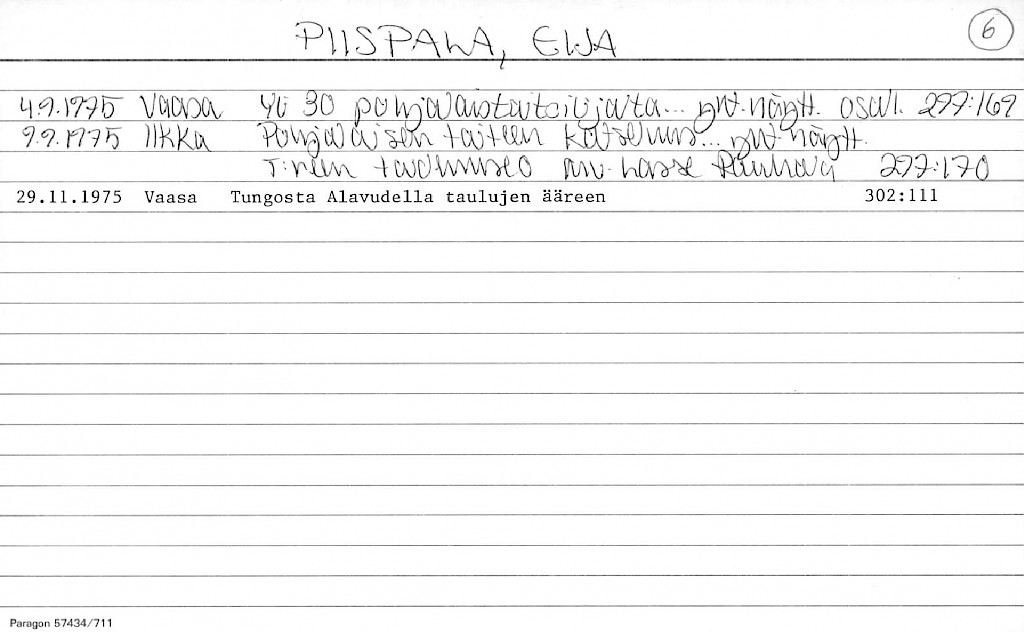 PIISPALA, EIJA 6
4.9.1975 Vaasa Yli 30 pohjalaistaiteilijalta... yht.näytt. osall. 297:169
9.9.1975 Ilkka Pohjalaisen taiteen katselmus... yht.näytt.
T:reen taidemuseo arv. Lasse Rauhala 297:170
29.11.1975 Vaasa Tungosta Alavudella taulujen ääreen 302:111
Paragon 57434/711